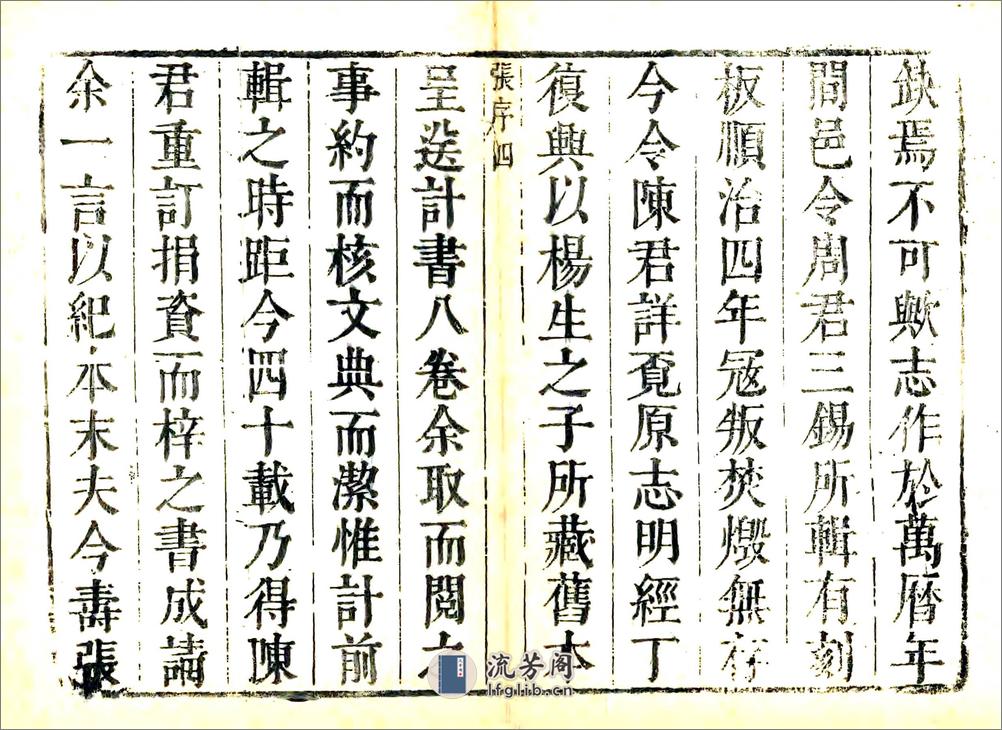 缺焉不可歟志作於萬曆年
間邑令周君三錫所輯有刻
板順治四年寇叛焚燬無存
今令陳君詳覔原志明經丁
復興以楊生之子所藏舊本
張序 四
呈送計書八卷余取而閱之
事約而核文典而潔惟計前
輯之時距今四十載乃得陳
君重訂捐資而梓之書成請
余一言以紀本末夫今壽張
流芳阁
lfglib.cn